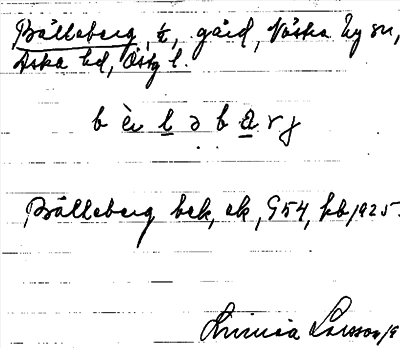 Bälleberg, ½, gård, Västra Ny sn,
Aska hd, Östg l.
b è l ə b a r j
Bälleberg bek, ek, G54, kb 1925.
Linnéa Larsson